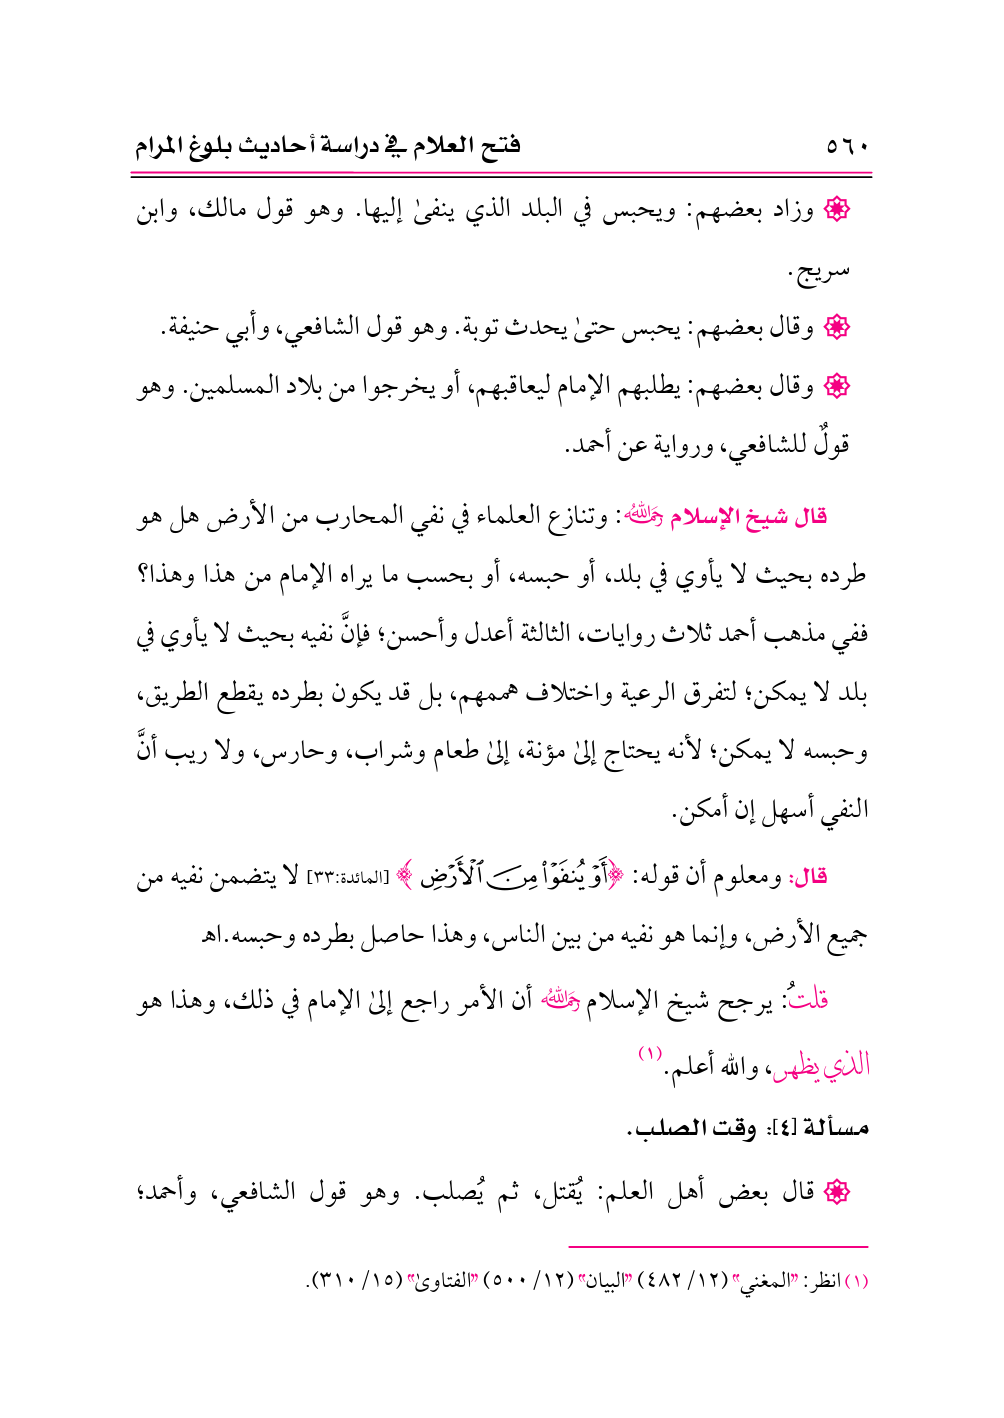 ٥٦٠ فتح العلام في دراسة أحاديث بلوغ المرام
وزاد بعضهم: ويحبس في البلد الذي ينفىٰ إليها. وهو قول مالك، وابن
سريج.
وقال بعضهم: يحبس حتىٰ يحدث توبة. وهو قول الشافعي، وأبي حنيفة.
وقال بعضهم: يطلبهم الإمام ليعاقبهم، أو يخرجوا من بلاد المسلمين. وهو
قولٌ للشافعي، ورواية عن أحمد.
قال شيخ الإسلام رحمه الله: وتنازع العلماء في نفي المحارب من الأرض هل هو
طرده بحيث لا يأوي في بلد، أو حبسه، أو بحسب ما يراه الإمام من هذا وهذا؟
ففي مذهب أحمد ثلاث روايات، الثالثة أعدل وأحسن؛ فإنَّ نفيه بحيث لا يأوي في
بلد لا يمكن؛ لتفرق الرعية واختلاف هممهم، بل قد يكون بطرده يقطع الطريق،
وحبسه لا يمكن؛ لأنه يحتاج إلىٰ مؤنة، إلىٰ طعام وشراب، وحارس، ولا ريب أنَّ
النفي أسهل إن أمكن.
قال: ومعلوم أن قوله: ﴿أَوۡ يُنفَوۡاْ مِنَ ٱلۡأَرۡضِ﴾ [المائدة:٣٣] لا يتضمن نفيه من
جميع الأرض، وإنما هو نفيه من بين الناس، وهذا حاصل بطرده وحبسه.اهـ
قلتُ: يرجح شيخ الإسلام رحمه الله أن الأمر راجع إلىٰ الإمام في ذلك، وهذا هو
الذي يظهر، والله أعلم.(١)
مسألة [٤]: وقت الصلب.
قال بعض أهل العلم: يُقتل، ثم يُصلب. وهو قول الشافعي، وأحمد؛
(١) انظر: "المغني" (١٢/ ٤٨٢) "البيان" (١٢/ ٥٠٠) "الفتاوىٰ" (١٥/ ٣١٠).